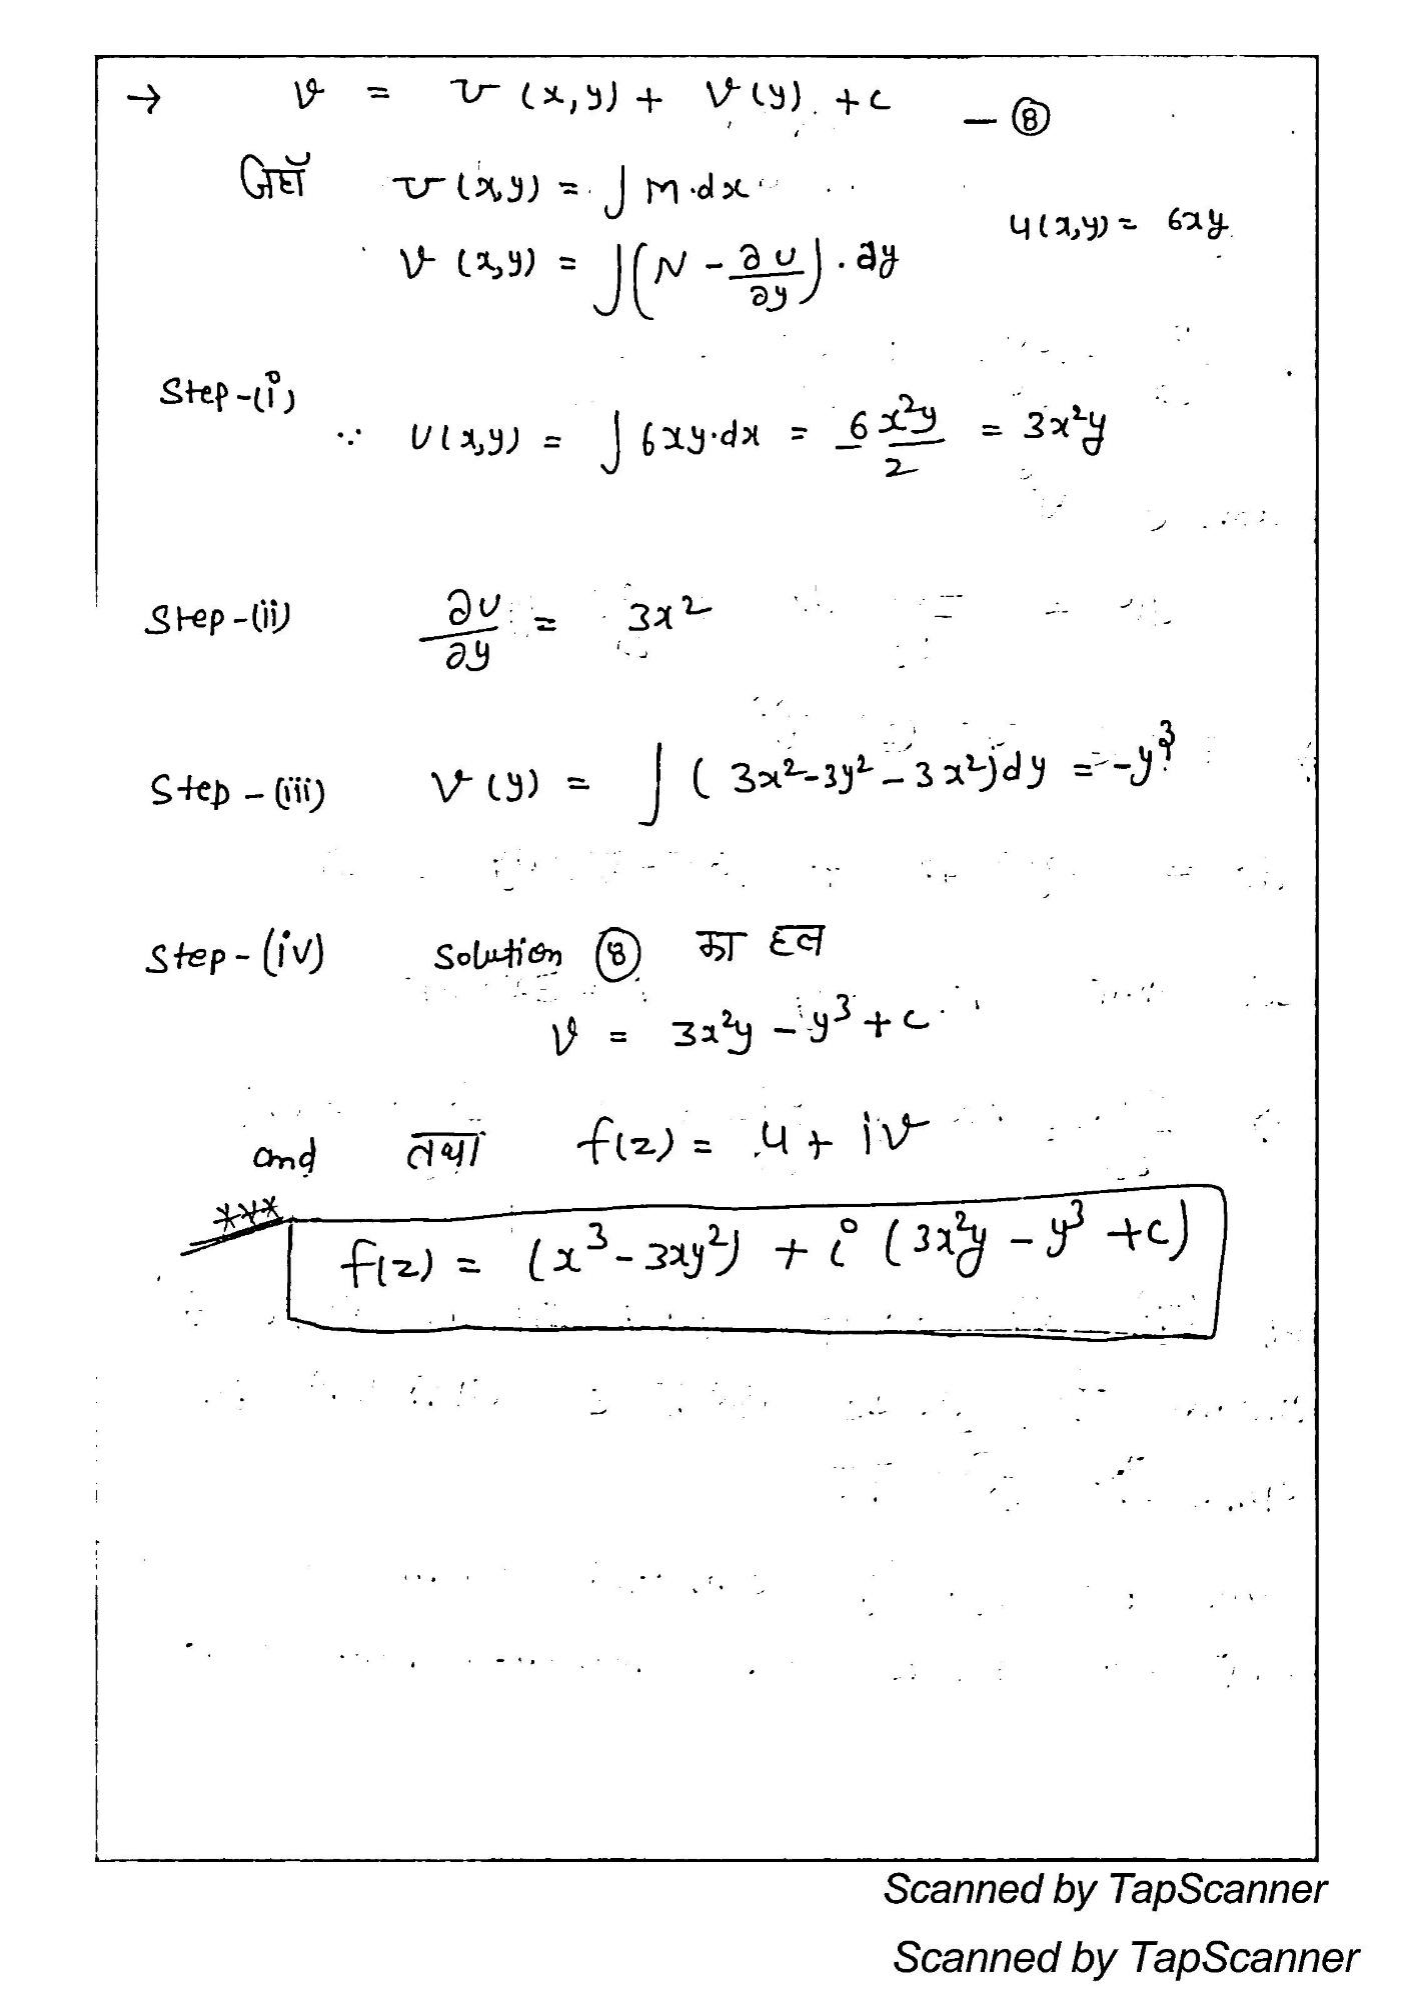 → v = U (x,y) + V(y) + c — ⑧
जहाँ U (x,y) = ∫ M.dx
u(x,y) = 6xy
V (x,y) = ∫(N - ∂U/∂y).∂y
Step-(i)
∵ U(x,y) = ∫ 6xy.dx = 6 x²y/2 = 3x²y
Step-(ii) ∂U/∂y = 3x²
Step-(iii) V(y) = ∫ (3x²-3y²-3x²)dy = -y³
Step-(iv) Solution ⑧ का हल
v = 3x²y - y³ + c
and तथा f(z) = u + iv
***
f(z) = (x³ - 3xy²) + i (3x²y - y³ + c)
Scanned by TapScanner
Scanned by TapScanner